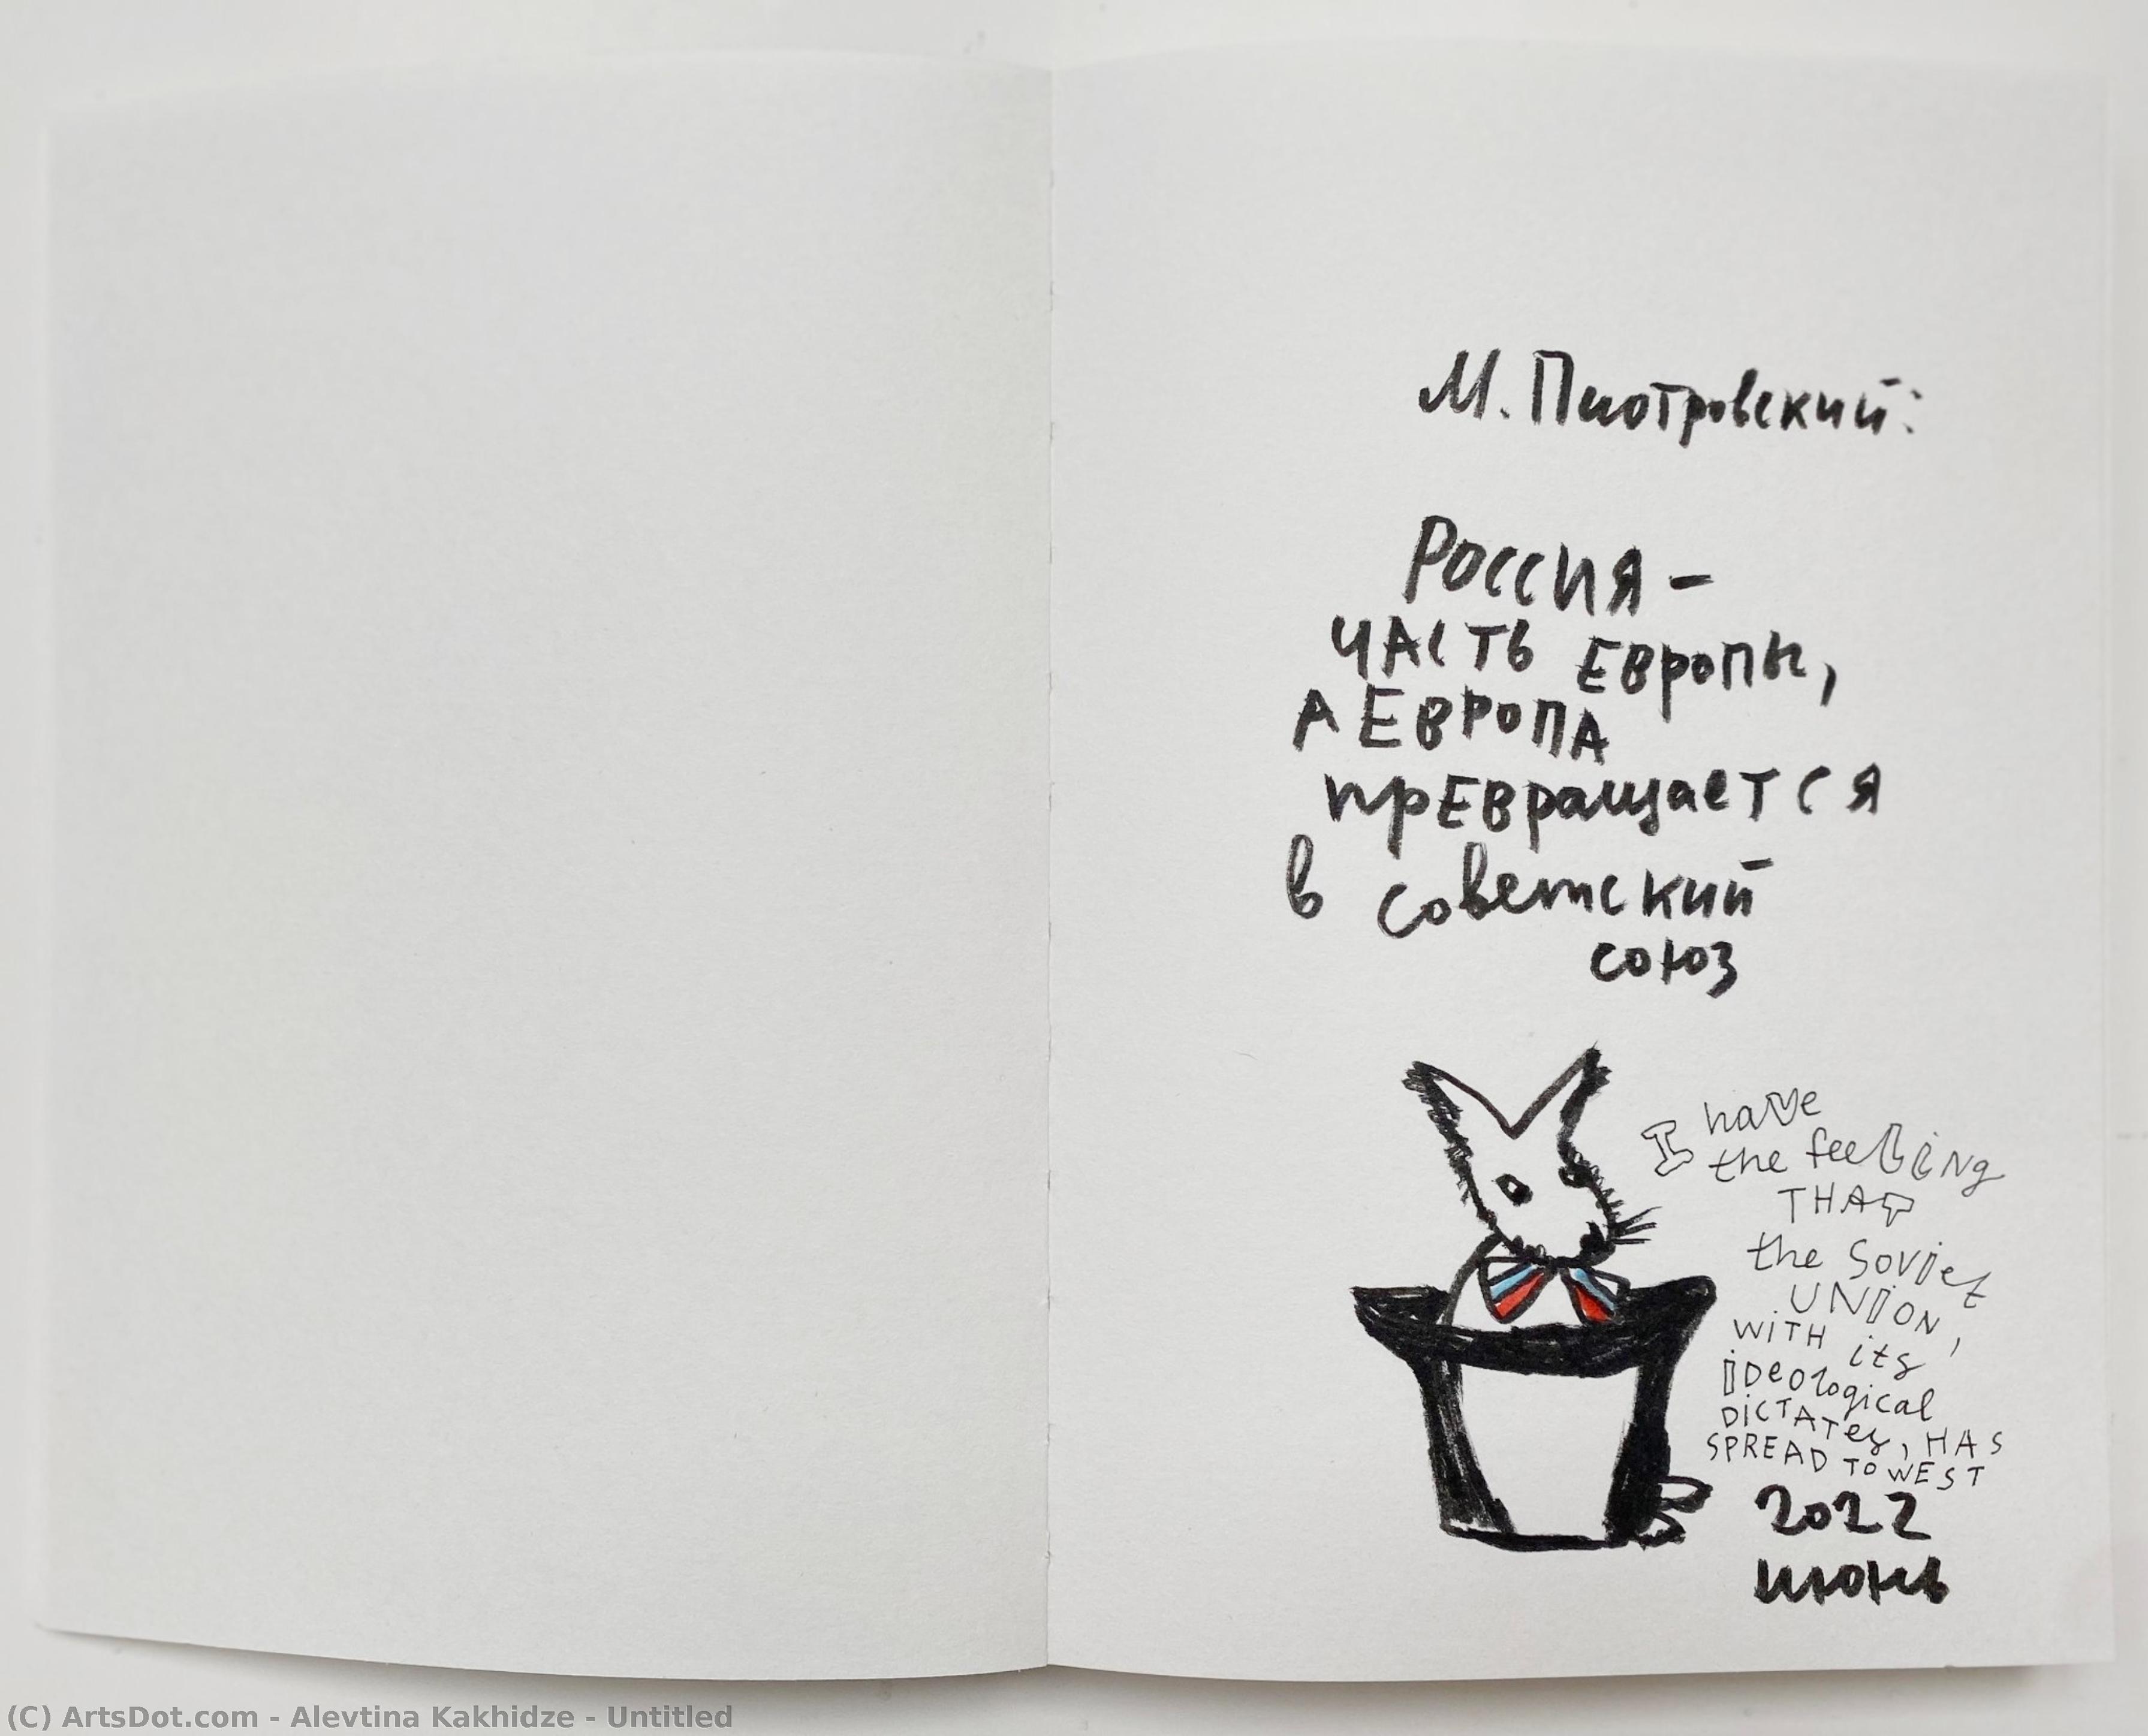 М. Пиотровский:
Россия –
часть Европы,
а Европа
превращается
в советский
союз
I have
the feeling
THAT
the Soviet
UNION,
WITH its
iDeological
DiCTATes, HAS
SPREAD TO WEST
2022
июнь
(C) ArtsDot.com - Alevtina Kakhidze - Untitled